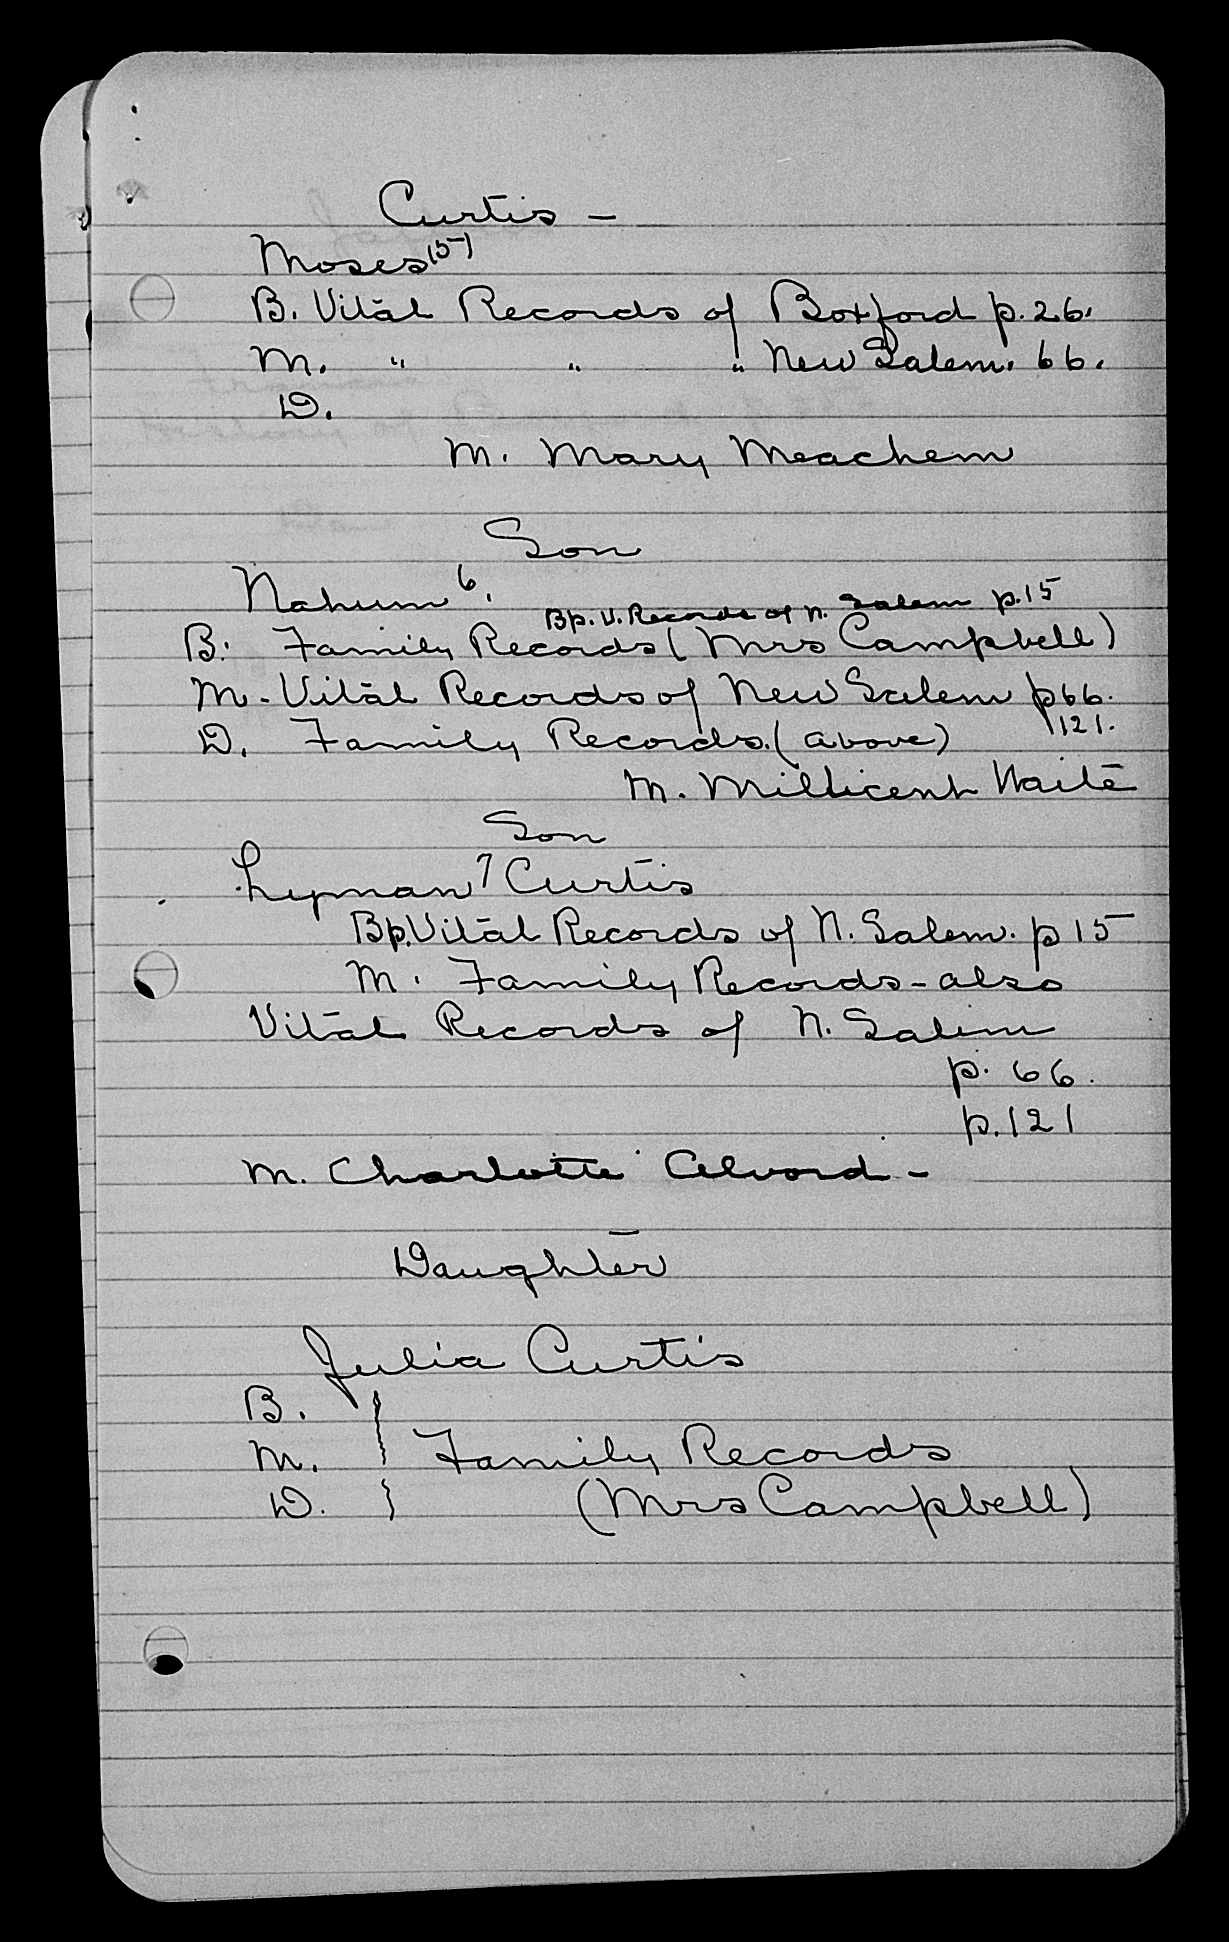 Curtis –
Moses (5)
B. Vital Records of Boxford p. 26.
M. " " " New Salem. 66.
D.
M. Mary Meachem
Son
Nahum 6.
Bp. V. Records of N. Salem p. 15
B. Family Records (Mrs Campbell)
M. Vital Records of New Salem p 66.
D. Family Records. (above) 121.
M. Millicent Waite
Son
Lyman 7 Curtis
Bp. Vital Records of N. Salem. p 15
M. Family Records – also
Vital Records of N. Salem
p. 66.
p. 121
M. Charlotte Alvord –
Daughter
Julia Curtis
B.
M. } Family Records
D. } (Mrs Campbell)